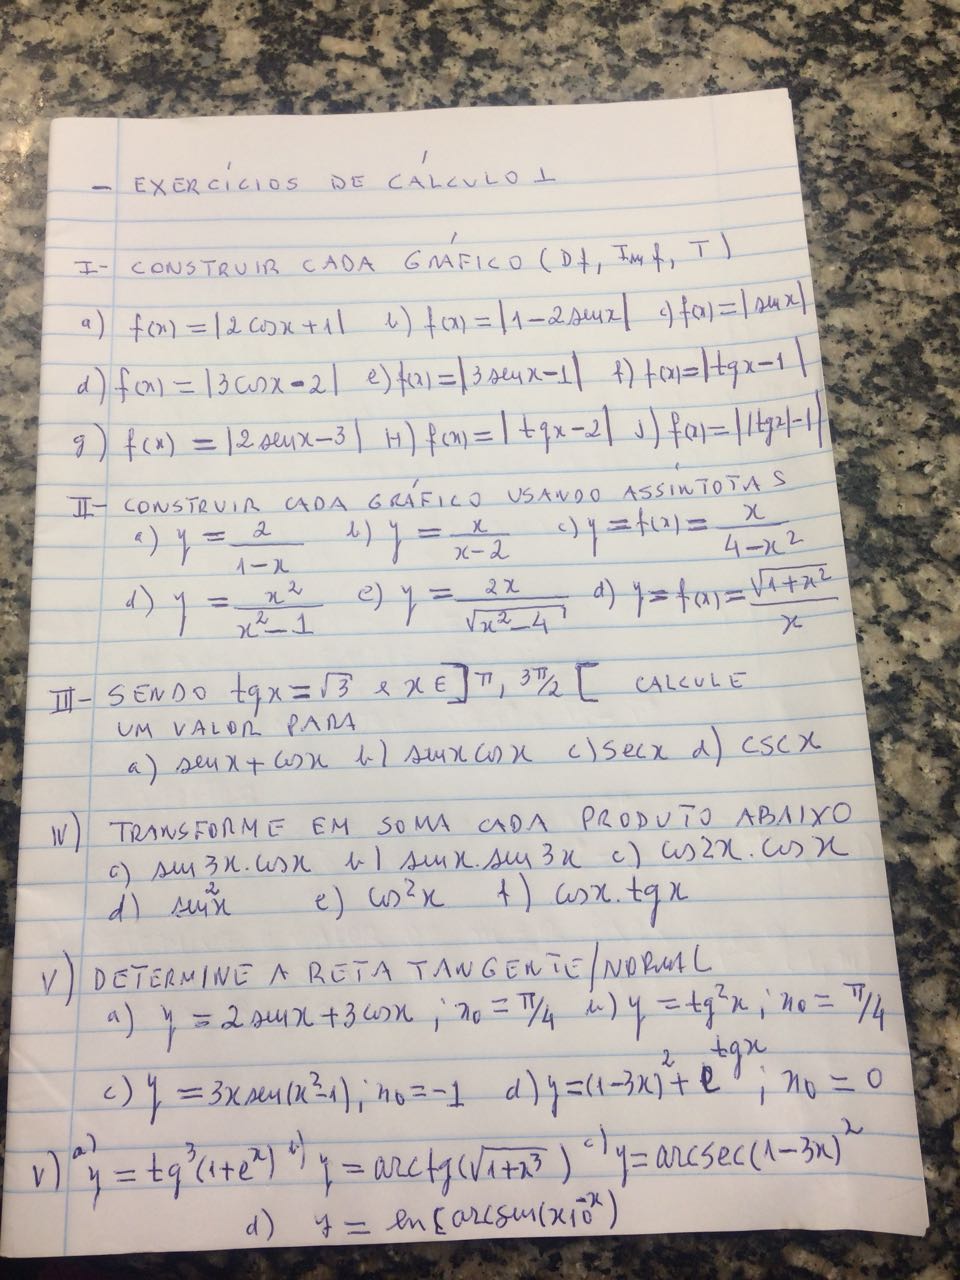 - EXERCÍCIOS DE CÁLCULO 1
I- CONSTRUIR CADA GRÁFICO (Df, Imf, T)
a) f(x) = |2cosx+1| b) f(x) = |1-2senx| c) f(x) = |senx|
d) f(x) = |3cosx-2| e) f(x) = |3senx-1| f) f(x) = |tgx-1|
g) f(x) = |2senx-3| H) f(x) = |tgx-2| J) f(x) = ||tgx|-1|
II- CONSTRUIR CADA GRÁFICO USANDO ASSÍNTOTAS
a) y = 2/(1-x) b) y = x/(x-2) c) y = f(x) = x/(4-x²)
d) y = x²/(x²-1) e) y = 2x/√(x²-4) d) y = f(x) = √(1+x²)/x
III- SENDO tgx = √3 e x ∈ ]π, 3π/2[ CALCULE
UM VALOR PARA
a) senx + cosx b) senx cosx c) secx d) cscx
IV) TRANSFORME EM SOMA CADA PRODUTO ABAIXO
a) sen3x.cosx b) senx.sen3x c) cos2x.cosx
d) sen²x e) cos²x f) cosx.tgx
V) DETERMINE A RETA TANGENTE/NORMAL
a) y = 2senx+3cosx ; x₀ = π/4 b) y = tg²x ; x₀ = π/4
c) y = 3xsen(x²-1) ; x₀ = -1 d) y = (1-3x)² + e^tgx ; x₀ = 0
V) a) y = tg³(1+e^x) b) y = arctg(√(1+x³)) c) y = arcsec(1-3x)²
d) y = ln[arcsen(x10^-x)